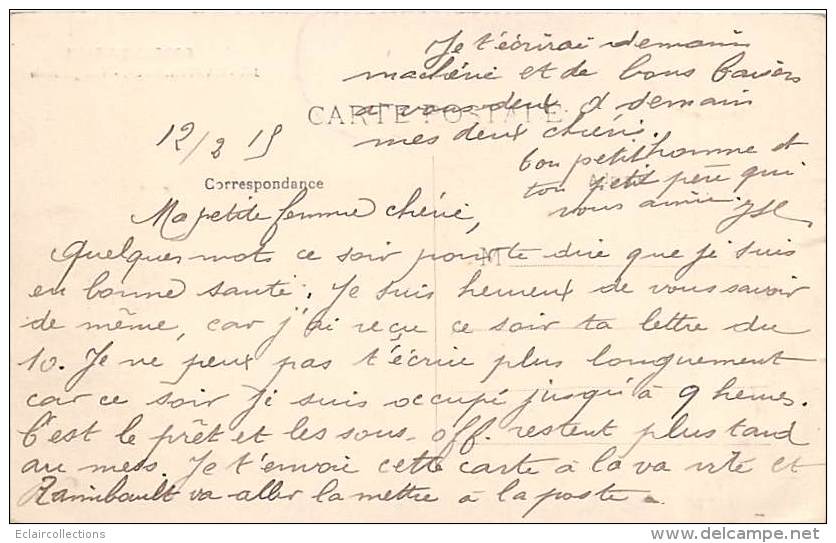 CARTE POSTALE
Correspondance
12/3 15
Ma petite femme chérie,
Quelques mots ce soir pour te dire que je suis
en bonne santé. Je suis heureux de vous savoir
de même, car j'ai reçu ce soir ta lettre du
10. Je ne peux pas t'écrire plus longuement
car ce soir je suis occupé jusqu'à 9 heures.
C'est le prêt et les sous-off. restent plus tard
au mess. Je t'envoie cette carte à la va vite et
va aller la mettre à la poste.
Je t'écrirai demain
ma chérie et de bons baisers
à vous deux. à demain
mes deux chéris.
ton petit homme et
ton petit père qui
vous aime.
M
Eclaircollections
delcampe.net